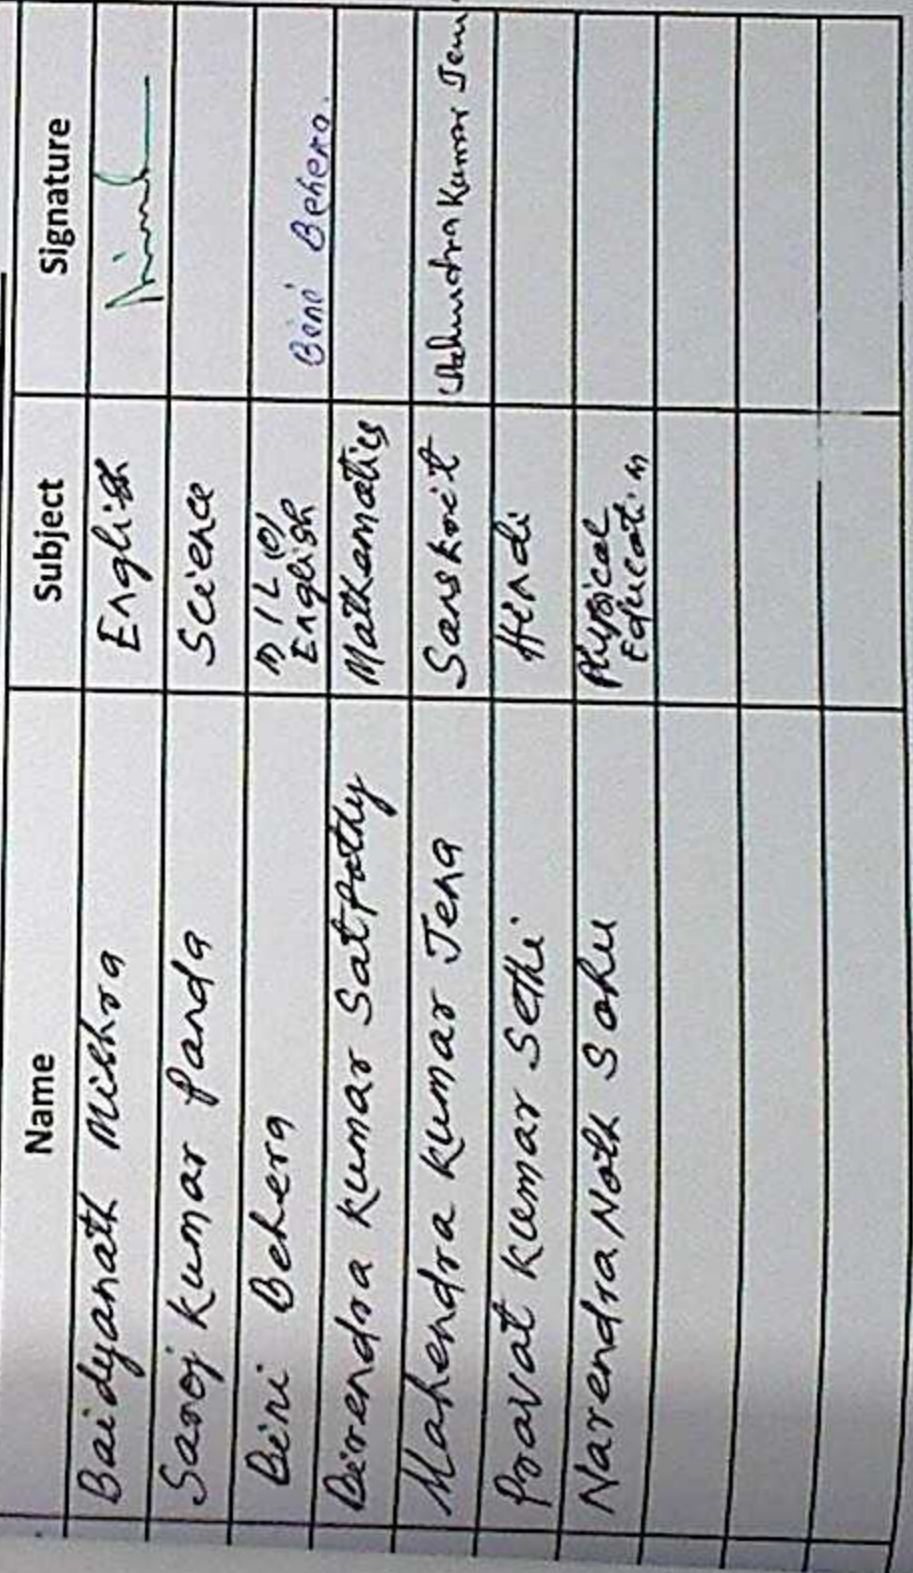 Name Subject Signature
Baidyanath Mishra English
Saroj Kumar Panda Science
Bini Behera M I L (O) English Bini Behera.
Birendra Kumar Satpathy Mathamatics
Mahendra Kumar Jena Sanskrit Mahendra Kumar Jena
Pravat Kumar Sethi Hindi
Narendra Nath Sahu Physical Education